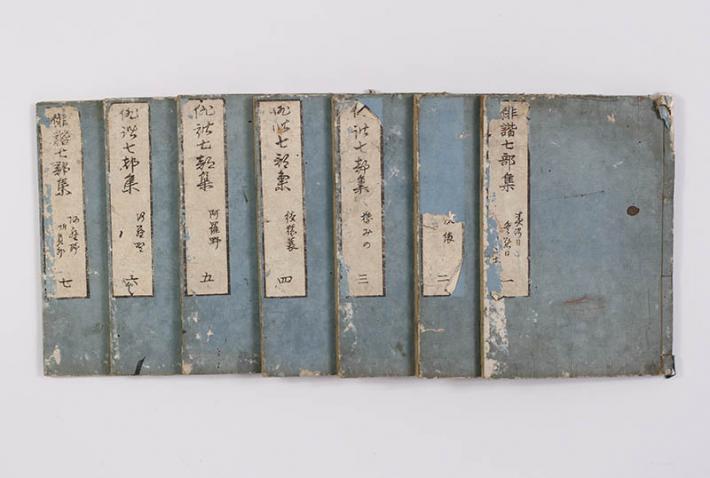 俳諧七部集
春の日
冬の日
一
二
俳諧七部集
猿みの
三
俳諧七部集
続猿蓑
四
俳諧七部集
阿羅野
五
俳諧七部集
阿羅野
六
俳諧七部集
阿羅野
七